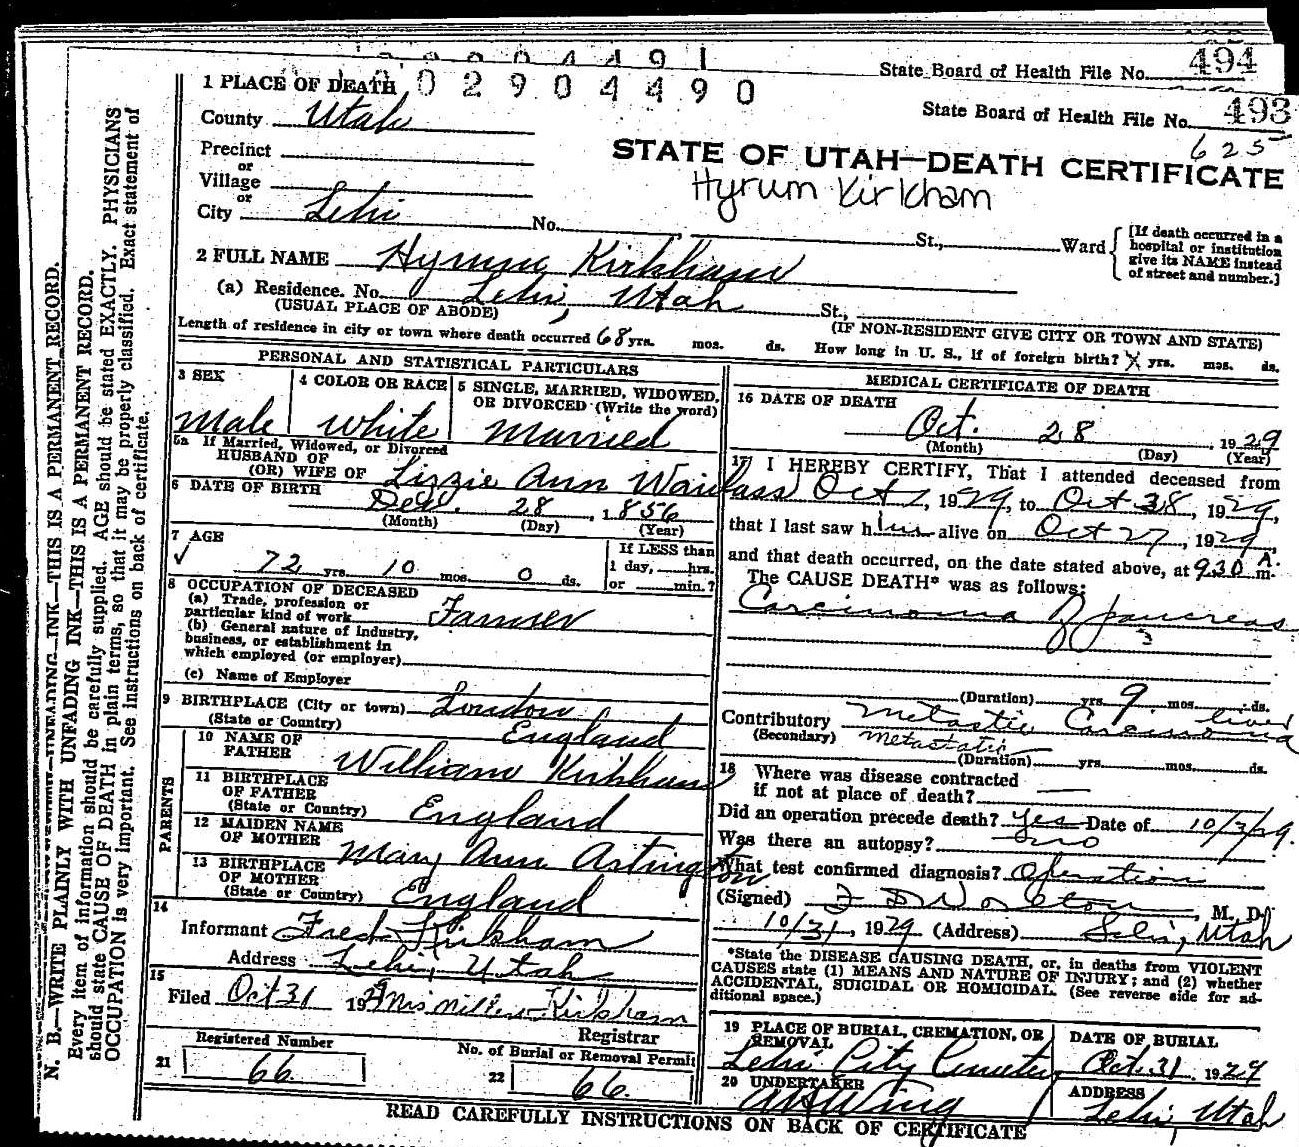 State Board of Health File No. 494
State Board of Health File No. 493
0 0 2 9 0 4 4 9 0
625
1 PLACE OF DEATH
County Utah
STATE OF UTAH—DEATH CERTIFICATE
Hyrum Kirkham
Precinct
or
Village
or
City Lehi No. St., Ward
[If death occurred in a hospital or institution give its NAME instead of street and number.]
2 FULL NAME Hyrum Kirkham
(a) Residence. No. Lehi, Utah St.,
(USUAL PLACE OF ABODE) (IF NON-RESIDENT GIVE CITY OR TOWN AND STATE)
Length of residence in city or town where death occurred 68 yrs. mos. ds. How long in U. S., if of foreign birth? X yrs. mos. ds.
PERSONAL AND STATISTICAL PARTICULARS
3 SEX
Male
4 COLOR OR RACE
White
5 SINGLE, MARRIED, WIDOWED, OR DIVORCED (Write the word)
Married
5a If Married, Widowed, or Divorced
HUSBAND OF
(OR) WIFE OF Lizzie Ann Wanlass
6 DATE OF BIRTH Dec. 28, 1856
(Month) (Day) (Year)
7 AGE
✓ 72 yrs. 10 mos. 0 ds.
If LESS than
1 day, hrs.
or min.?
8 OCCUPATION OF DECEASED
(a) Trade, profession or
particular kind of work Farmer
(b) General nature of industry,
business, or establishment in
which employed (or employer)
(c) Name of Employer
9 BIRTHPLACE (City or town) London
(State or Country) England
PARENTS
10 NAME OF
FATHER William Kirkham
11 BIRTHPLACE
OF FATHER
(State or Country) England
12 MAIDEN NAME
OF MOTHER Mary Ann Astington
13 BIRTHPLACE
OF MOTHER
(State or Country) England
14
Informant Fred Kirkham
Address Lehi, Utah
15
Filed Oct 31 1929 Mrs Kirkham
Registrar
Registered Number
21 66
No. of Burial or Removal Permit
22 66
MEDICAL CERTIFICATE OF DEATH
16 DATE OF DEATH
Oct. 28, 1929
(Month) (Day) (Year)
17 I HEREBY CERTIFY, That I attended deceased from
Oct 1, 1929, to Oct 28, 1929,
that I last saw him alive on Oct 27, 1929,
and that death occurred, on the date stated above, at 930 A. m.
The CAUSE DEATH* was as follows:
Carcinoma of pancreas
(Duration) yrs. 9 mos. ds.
Contributory Metastic Carcinoma liver
(Secondary) Metastatic
(Duration) yrs. mos. ds.
18 Where was disease contracted
if not at place of death?
Did an operation precede death? Yes Date of 10/3/29.
Was there an autopsy? no
What test confirmed diagnosis? Operation
(Signed) M. D.
10/31, 1929 (Address) Lehi, Utah
*State the DISEASE CAUSING DEATH, or, in deaths from VIOLENT
CAUSES state (1) MEANS AND NATURE OF INJURY; and (2) whether
ACCIDENTAL, SUICIDAL OR HOMICIDAL. (See reverse side for ad-
ditional space.)
19 PLACE OF BURIAL, CREMATION, OR
REMOVAL
Lehi City Cemetery
DATE OF BURIAL
Oct. 31, 1929
20 UNDERTAKER
A H Wing
ADDRESS
Lehi, Utah
READ CAREFULLY INSTRUCTIONS ON BACK OF CERTIFICATE
N. B.—WRITE PLAINLY WITH UNFADING INK—THIS IS A PERMANENT RECORD.
Every item of information should be carefully supplied. AGE should be stated EXACTLY. PHYSICIANS
should state CAUSE OF DEATH in plain terms, so that it may be properly classified. Exact statement of
OCCUPATION is very important. See instructions on back of certificate.